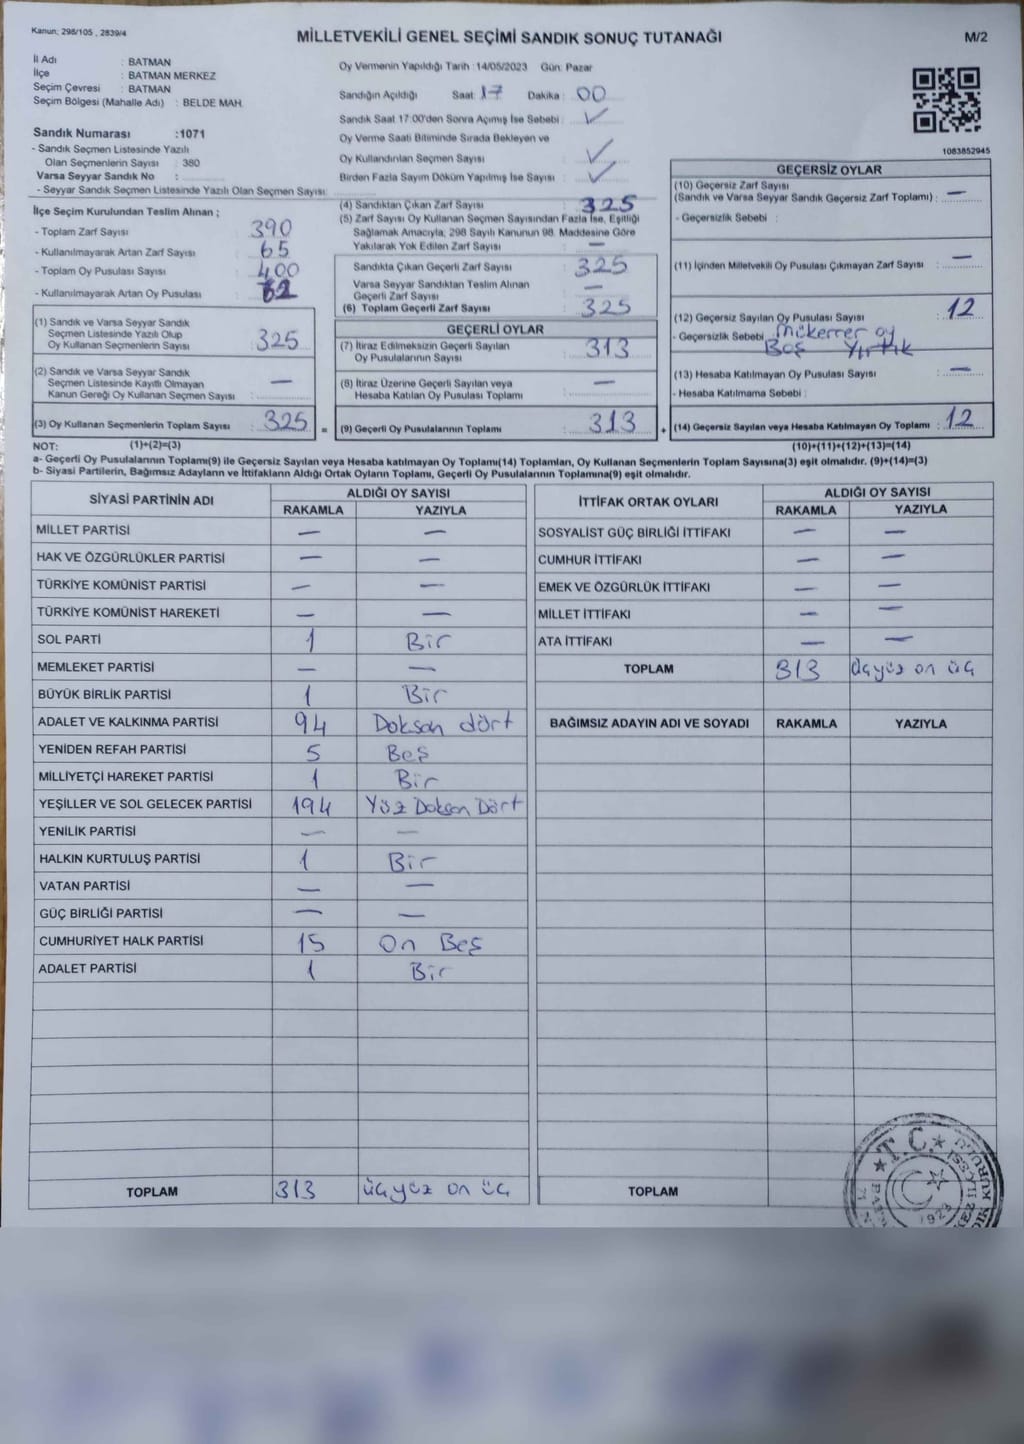 Kanun: 298/105 , 2839/4
MİLLETVEKİLİ GENEL SEÇİMİ SANDIK SONUÇ TUTANAĞI
M/2
İl Adı : BATMAN
İlçe : BATMAN MERKEZ
Seçim Çevresi : BATMAN
Seçim Bölgesi (Mahalle Adı) : BELDE MAH.
Sandık Numarası :1071
- Sandık Seçmen Listesinde Yazılı
Olan Seçmenlerin Sayısı : 380
Varsa Seyyar Sandık No :
- Seyyar Sandık Seçmen Listesinde Yazılı Olan Seçmen Sayısı:
Oy Vermenin Yapıldığı Tarih : 14/05/2023 Gün: Pazar
Sandığın Açıldığı Saat: 17 Dakika : 00
Sandık Saat 17:00'den Sonra Açılmış İse Sebebi : ✓
Oy Verme Saati Bitiminde Sırada Bekleyen ve
Oy Kullandırılan Seçmen Sayısı : ✓
Birden Fazla Sayım Döküm Yapılmış İse Sayısı : ✓
1083852945
İlçe Seçim Kurulundan Teslim Alınan ;
- Toplam Zarf Sayısı : 390
- Kullanılmayarak Artan Zarf Sayısı : 65
- Toplam Oy Pusulası Sayısı : 400
- Kullanılmayarak Artan Oy Pusulası :
(1) Sandık ve Varsa Seyyar Sandık
Seçmen Listesinde Yazılı Olup
Oy Kullanan Seçmenlerin Sayısı : 325
(2) Sandık ve Varsa Seyyar Sandık
Seçmen Listesinde Kayıtlı Olmayan
Kanun Gereği Oy Kullanan Seçmen Sayısı : —
(3) Oy Kullanan Seçmenlerin Toplam Sayısı : 325 =
(4) Sandıktan Çıkan Zarf Sayısı : 325
(5) Zarf Sayısı Oy Kullanan Seçmen Sayısından Fazla İse, Eşitliği
Sağlamak Amacıyla; 298 Sayılı Kanunun 98. Maddesine Göre
Yakılarak Yok Edilen Zarf Sayısı : —
Sandıkta Çıkan Geçerli Zarf Sayısı : 325
Varsa Seyyar Sandıktan Teslim Alınan
Geçerli Zarf Sayısı : —
(6) Toplam Geçerli Zarf Sayısı : 325
GEÇERLİ OYLAR
(7) İtiraz Edilmeksizin Geçerli Sayılan
Oy Pusulalarının Sayısı : 313
(8) İtiraz Üzerine Geçerli Sayılan veya
Hesaba Katılan Oy Pusulası Toplamı : —
(9) Geçerli Oy Pusulalarının Toplamı : 313 +
GEÇERSİZ OYLAR
(10) Geçersiz Zarf Sayısı
(Sandık ve Varsa Seyyar Sandık Geçersiz Zarf Toplamı) : —
- Geçersizlik Sebebi :
(11) İçinden Milletvekili Oy Pusulası Çıkmayan Zarf Sayısı : —
(12) Geçersiz Sayılan Oy Pusulası Sayısı : 12
- Geçersizlik Sebebi : Mükerrer oy
Boş Yırtık
(13) Hesaba Katılmayan Oy Pusulası Sayısı : —
- Hesaba Katılmama Sebebi :
(14) Geçersiz Sayılan veya Hesaba Katılmayan Oy Toplamı : 12
NOT: (1)+(2)=(3) (10)+(11)+(12)+(13)=(14)
a- Geçerli Oy Pusulalarının Toplamı(9) ile Geçersiz Sayılan veya Hesaba katılmayan Oy Toplamı(14) Toplamları, Oy Kullanan Seçmenlerin Toplam Sayısına(3) eşit olmalıdır. (9)+(14)=(3)
b- Siyasi Partilerin, Bağımsız Adayların ve İttifakların Aldığı Ortak Oyların Toplamı, Geçerli Oy Pusulalarının Toplamına(9) eşit olmalıdır.
SİYASİ PARTİNİN ADI ALDIĞI OY SAYISI
RAKAMLA YAZIYLA
MİLLET PARTİSİ — —
HAK VE ÖZGÜRLÜKLER PARTİSİ — —
TÜRKİYE KOMÜNİST PARTİSİ — —
TÜRKİYE KOMÜNİST HAREKETİ — —
SOL PARTİ 1 Bir
MEMLEKET PARTİSİ — —
BÜYÜK BİRLİK PARTİSİ 1 Bir
ADALET VE KALKINMA PARTİSİ 94 Doksan dört
YENİDEN REFAH PARTİSİ 5 Beş
MİLLİYETÇİ HAREKET PARTİSİ 1 Bir
YEŞİLLER VE SOL GELECEK PARTİSİ 194 Yüz Doksan Dört
YENİLİK PARTİSİ — —
HALKIN KURTULUŞ PARTİSİ 1 Bir
VATAN PARTİSİ — —
GÜÇ BİRLİĞİ PARTİSİ — —
CUMHURİYET HALK PARTİSİ 15 On Beş
ADALET PARTİSİ 1 Bir
TOPLAM 313 üçyüz on üç
İTTİFAK ORTAK OYLARI ALDIĞI OY SAYISI
RAKAMLA YAZIYLA
SOSYALİST GÜÇ BİRLİĞİ İTTİFAKI — —
CUMHUR İTTİFAKI — —
EMEK VE ÖZGÜRLÜK İTTİFAKI — —
MİLLET İTTİFAKI — —
ATA İTTİFAKI — —
TOPLAM 313 üçyüz on üç
BAĞIMSIZ ADAYIN ADI VE SOYADI RAKAMLA YAZIYLA
TOPLAM
T.C.
1923